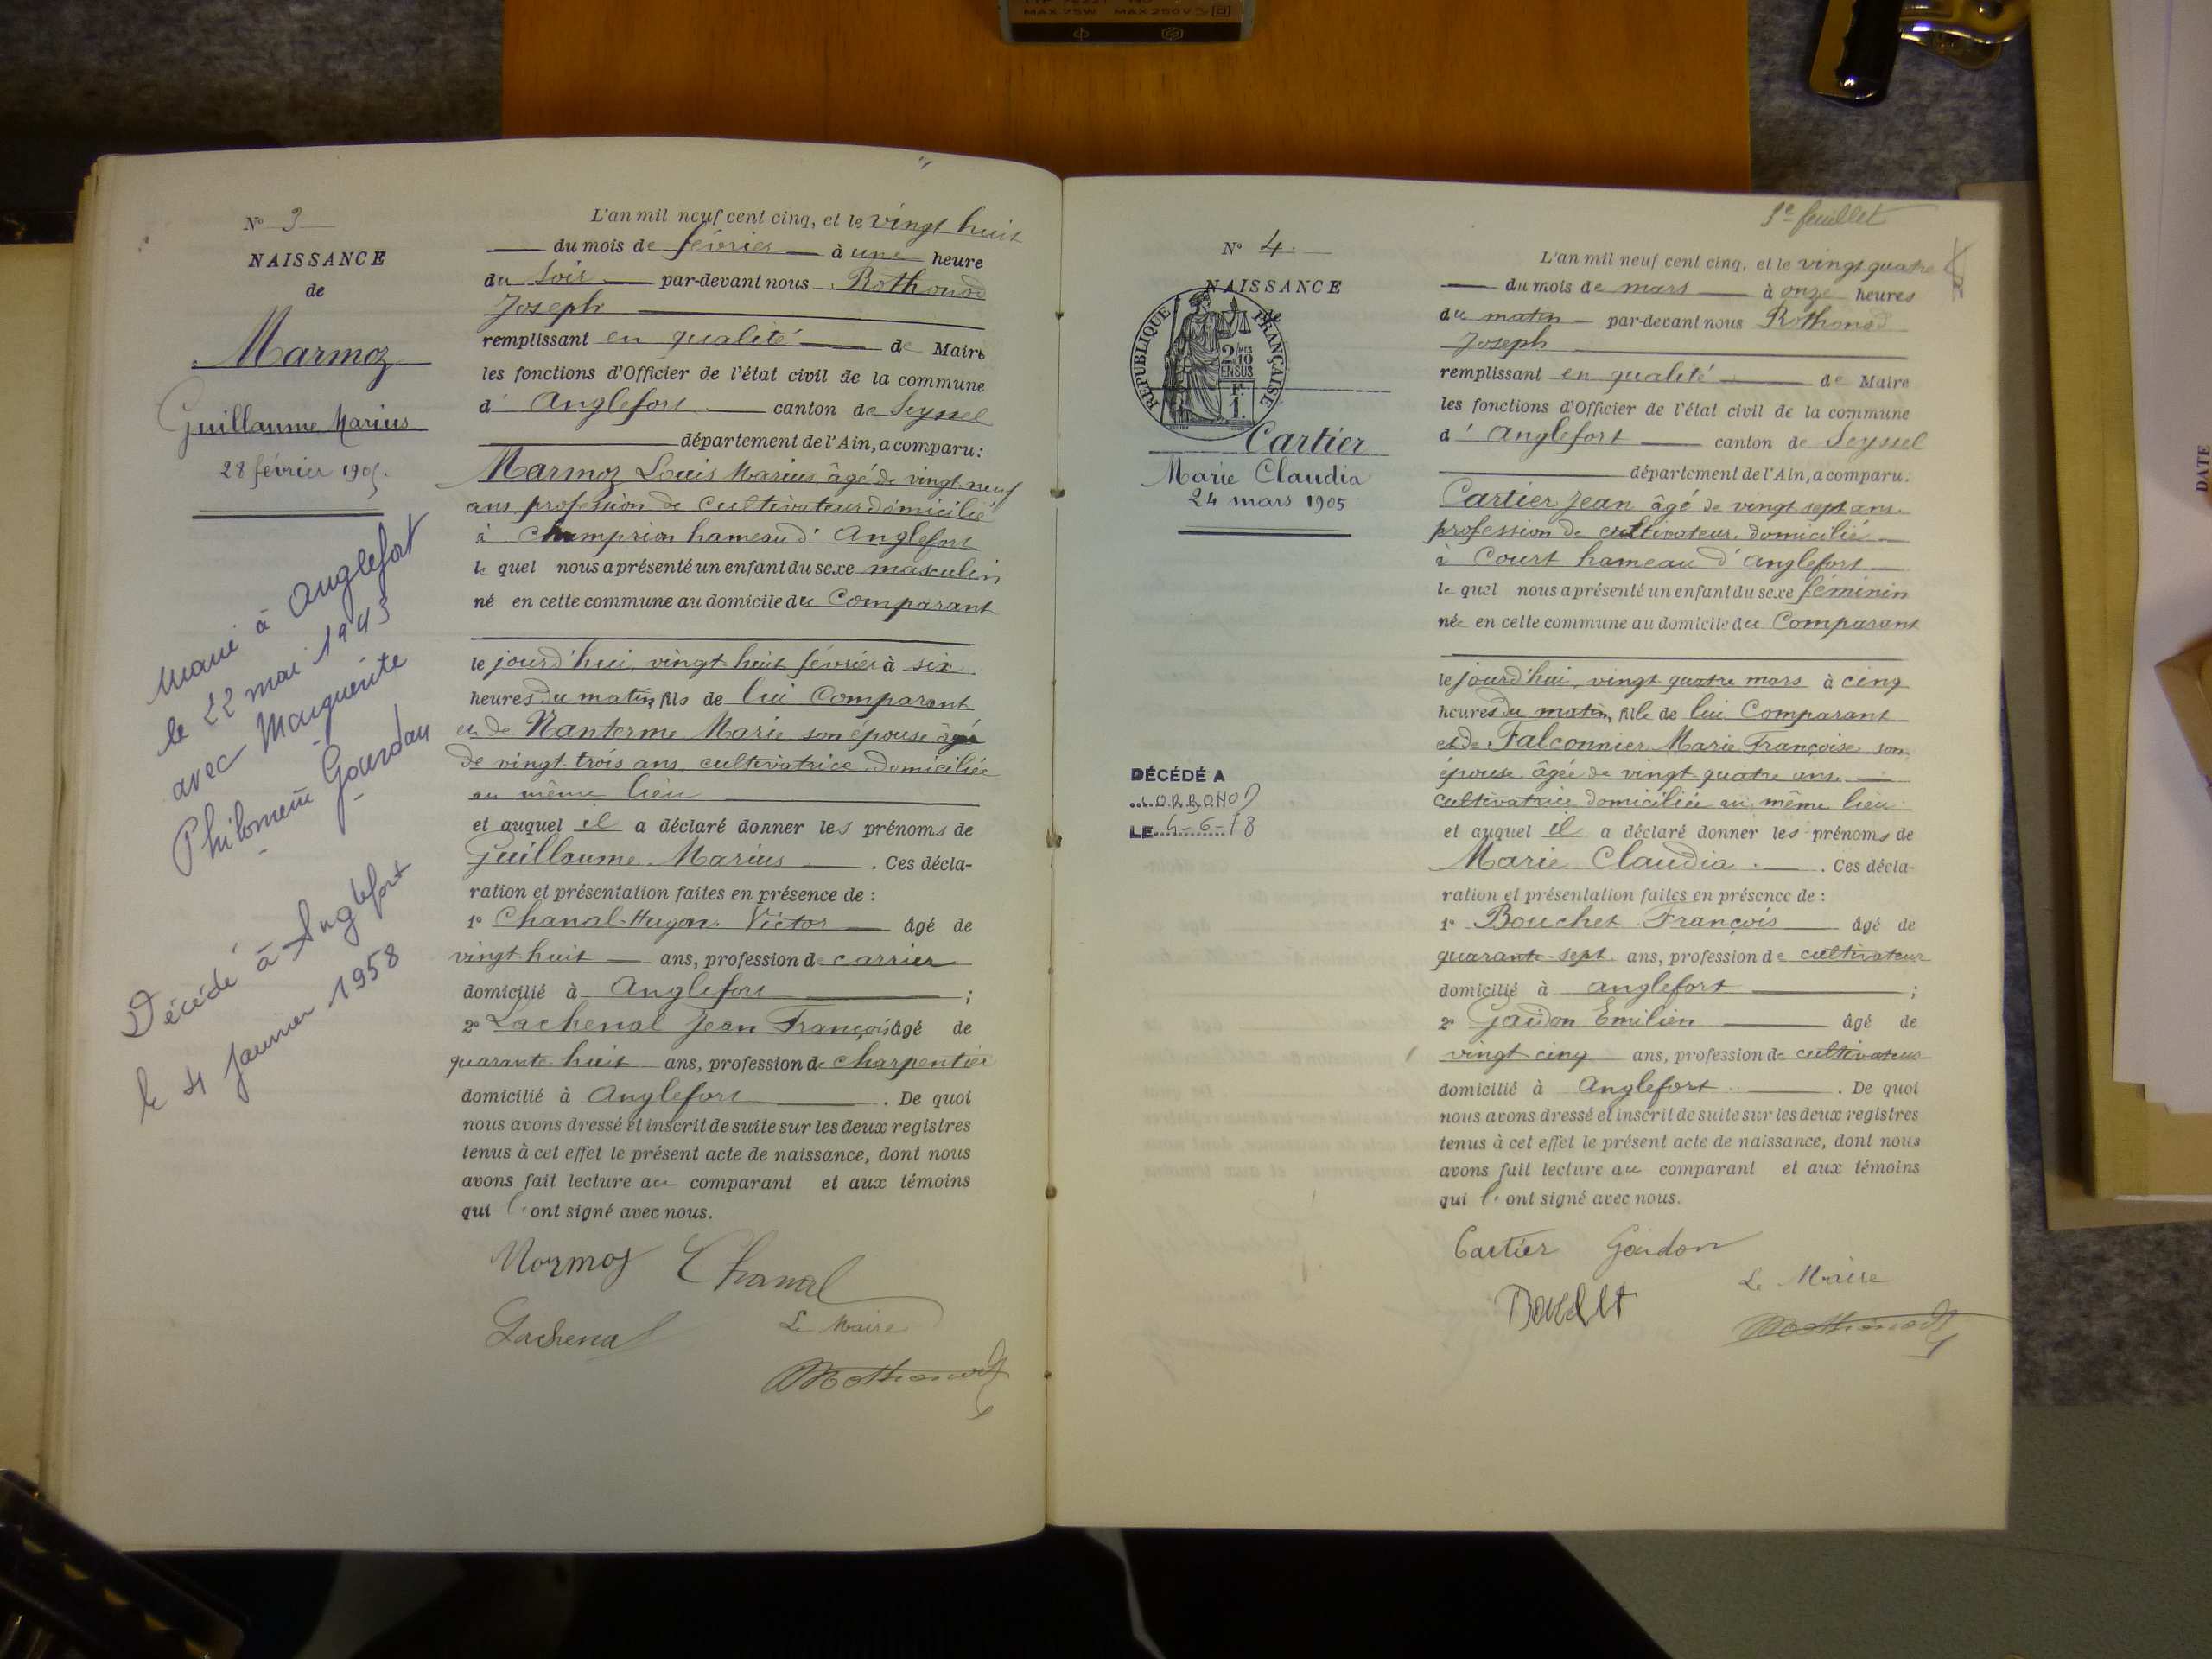 MAX 25W MAX 250V
N° 3
NAISSANCE
de
Marmoz
Guillaume Marius
28 février 1905.
Marié à Anglefort
le 22 mai 1943
avec Marguerite
Philomène Gourdan
Décédé à Anglefort
le 4 Janvier 1958
L'an mil neuf cent cinq, et le vingt huit
du mois de février à une heure
du soir par-devant nous Rothonod
Joseph
remplissant en qualité de Maire
les fonctions d'Officier de l'état civil de la commune
d' Anglefort canton de Seyssel
département de l'Ain, a comparu:
Marmoz Louis Marius âgé de vingt neuf
ans profession de cultivateur domicilié
à Champrion hameau d' Anglefort
le quel nous a présenté un enfant du sexe masculin
né en cette commune au domicile du Comparant
le jourd'hui, vingt-huit février à six
heures du matin, fils de lui Comparant
et de Nanterme Marie son épouse âgée
de vingt-trois ans cultivatrice domiciliée
au même lieu
et auquel il a déclaré donner les prénoms de
Guillaume Marius . Ces décla-
ration et présentation faites en présence de :
1° Chanal-Hugon Victor âgé de
vingt-huit ans, profession de carrier
domicilié à Anglefort ;
2° Lachenal Jean François âgé de
quarante-huit ans, profession de charpentier
domicilié à Anglefort . De quoi
nous avons dressé et inscrit de suite sur les deux registres
tenus à cet effet le présent acte de naissance, dont nous
avons fait lecture au comparant et aux témoins
qui l' ont signé avec nous.
Marmoz Chanal
Lachenal Le Maire
Rothonod
3e feuillet
N° 4
NAISSANCE
de
REPUBLIQUE FRANÇAISE
2/10 MES
EN SUS
F.
1.
Cartier
Marie Claudia
24 mars 1905
DÉCÉDÉ A
LE 4-6-78
L'an mil neuf cent cinq, et le vingt quatre
du mois de mars à onze heures
du matin par-devant nous Rothonod
Joseph
remplissant en qualité de Maire
les fonctions d'Officier de l'état civil de la commune
d' Anglefort canton de Seyssel
département de l'Ain, a comparu:
Cartier Jean âgé de vingt sept ans
profession de cultivateur domicilié
à Court hameau d'anglefort
le quel nous a présenté un enfant du sexe féminin
née en cette commune au domicile du Comparant
le jourd'hui, vingt quatre mars à cinq
heures du matin, fille de lui Comparant
et de Falconnier Marie Françoise son
épouse âgée de vingt-quatre ans
cultivatrice domiciliée au même lieu
et auquel il a déclaré donner les prénoms de
Marie Claudia . Ces décla-
ration et présentation faites en présence de :
1° Bouchet François âgé de
quarante-sept ans, profession de cultivateur
domicilié à anglefort ;
2° Gaidon Emilien âgé de
vingt cinq ans, profession de cultivateur
domicilié à Anglefort . De quoi
nous avons dressé et inscrit de suite sur les deux registres
tenus à cet effet le présent acte de naissance, dont nous
avons fait lecture au comparant et aux témoins
qui l' ont signé avec nous.
Cartier Gaidon
Le Maire
Bouchet
Rothonod
DATE